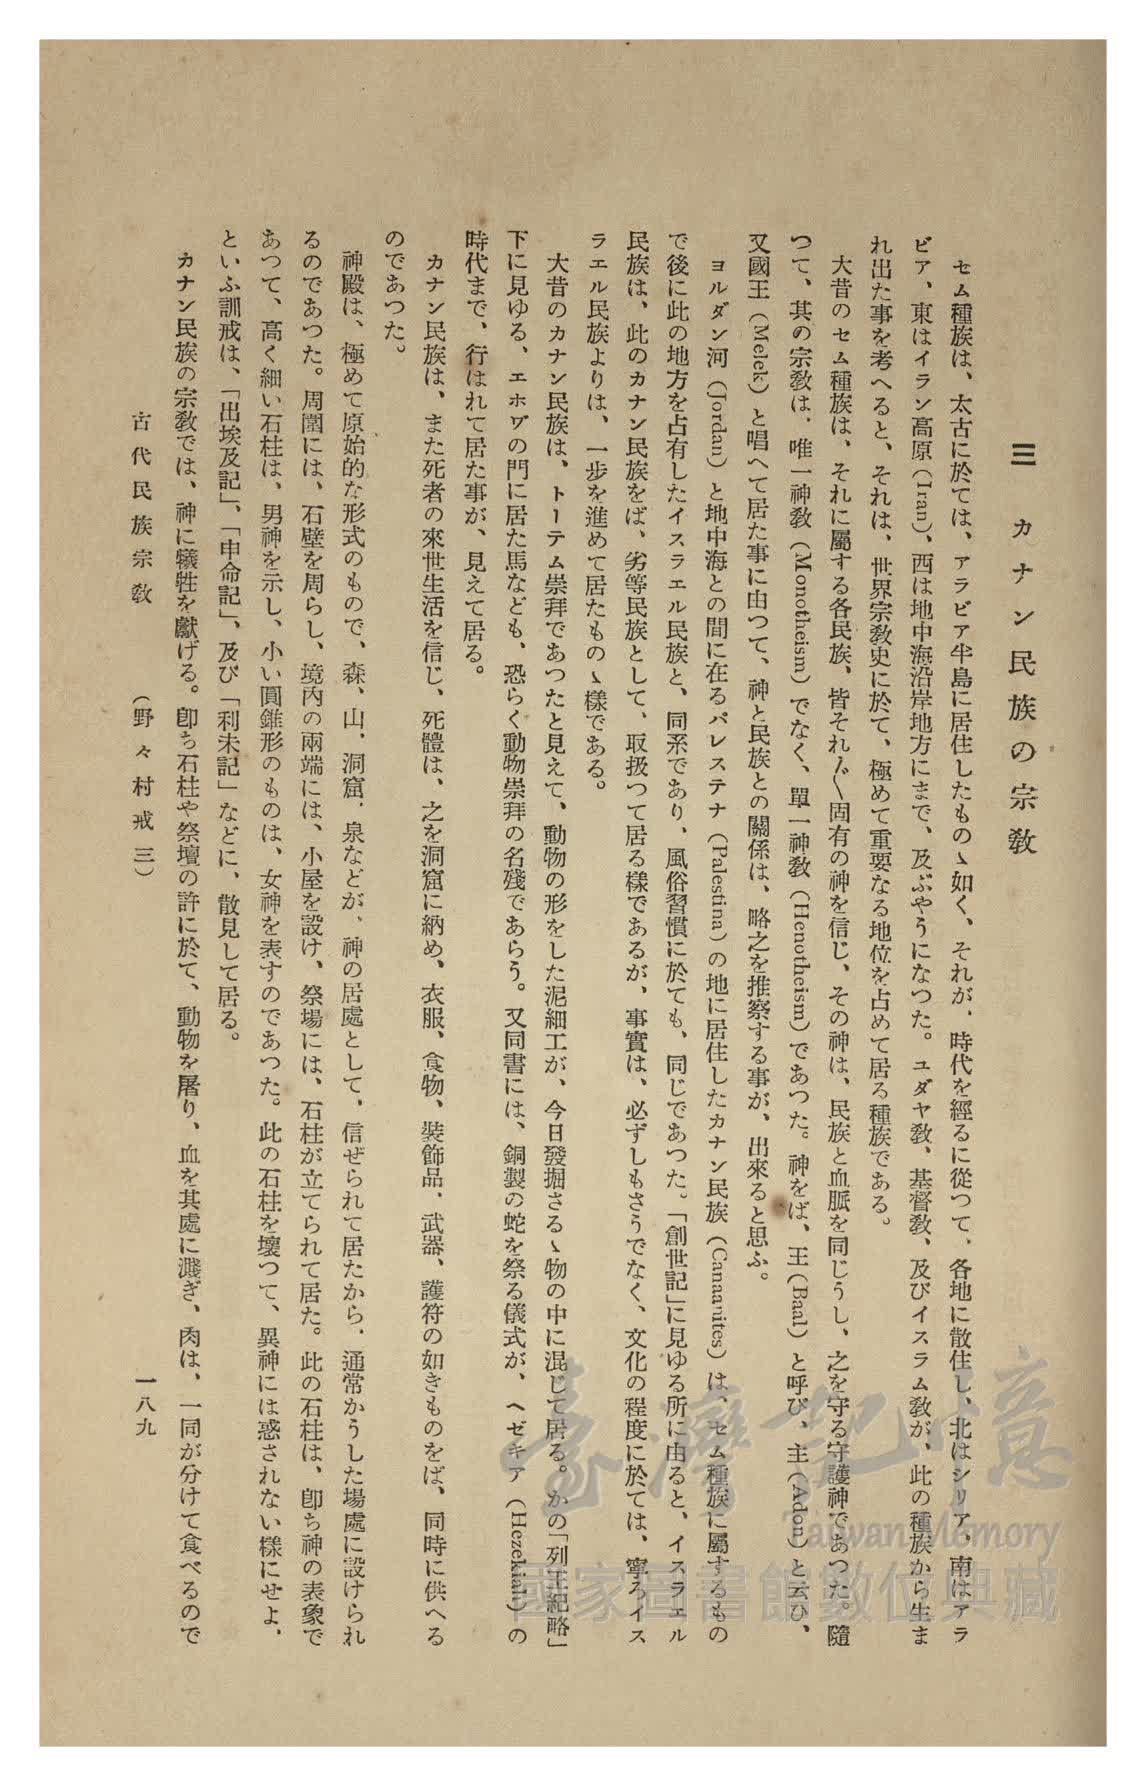 三　カナン民族の宗教
セム種族は、太古に於ては、アラビア半島に居住したものゝ如く、それが、時代を經るに從つて、各地に散住し、北はシリア、南はアラ
ビア、東はイラン高原(Iran)、西は地中海沿岸地方にまで、及ぶやうになつた。ユダヤ教、基督教、及びイスラム教が、此の種族から生ま
れ出た事を考へると、それは、世界宗教史に於て、極めて重要なる地位を占めて居る種族である。
大昔のセム種族は、それに屬する各民族、皆それ〲固有の神を信じ、その神は、民族と血脈を同じうし、之を守る守護神であつた。隨
つて、其の宗教は、唯一神教(Monotheism)でなく、單一神教(Henotheism)であつた。神をば、王(Baal)と呼び、主(Adon)と云ひ、
又國王(Melek)と唱へて居た事に由つて、神と民族との關係は、略之を推察する事が、出來ると思ふ。
ヨルダン河(Jordan)と地中海との間に在るパレステナ(Palestina)の地に居住したカナン民族(Canaanites)は、セム種族に屬するもの
で後に此の地方を占有したイスラエル民族と、同系であり、風俗習慣に於ても、同じであつた。「創世記」に見ゆる所に由ると、イスラエル
民族は、此のカナン民族をば、劣等民族として、取扱つて居る樣であるが、事實は、必ずしもさうでなく、文化の程度に於ては、寧ろイス
ラエル民族よりは、一步を進めて居たものゝ樣である。
大昔のカナン民族は、トーテム崇拜であつたと見えて、動物の形をした泥細工が、今日發掘さるゝ物の中に混じて居る。かの「列王紀略」
下に見ゆる、エホワの門に居た馬なども、恐らく動物崇拜の名殘であらう。又同書には、銅製の蛇を祭る儀式が、ヘゼキア(Hezekiah)の
時代まで、行はれて居た事が、見えて居る。
カナン民族は、また死者の來世生活を信じ、死體は、之を洞窟に納め、衣服、食物、裝飾品、武器、護符の如きものをば、同時に供へる
のであつた。
神殿は、極めて原始的な形式のもので、森、山、洞窟、泉などが、神の居處として、信ぜられて居たから、通常かうした場處に設けられ
るのであつた。周圍には、石壁を周らし、境內の兩端には、小屋を設け、祭場には、石柱が立てられて居た。此の石柱は、卽ち神の表象で
あつて、高く細い石柱は、男神を示し、小い圓錐形のものは、女神を表すのであつた。此の石柱を壞つて、異神には惑されない樣にせよ、
といふ訓戒は、「出埃及記」、「申命記」、及び「利未記」などに、散見して居る。
カナン民族の宗教では、神に犧牲を獻げる。卽ち石柱や祭壇の許に於て、動物を屠り、血を其處に濺ぎ、肉は、一同が分けて食べるので
古代民族宗教　（野々村戒三）　一八九
臺灣記憶
Taiwan Memory
國家圖書館數位典藏